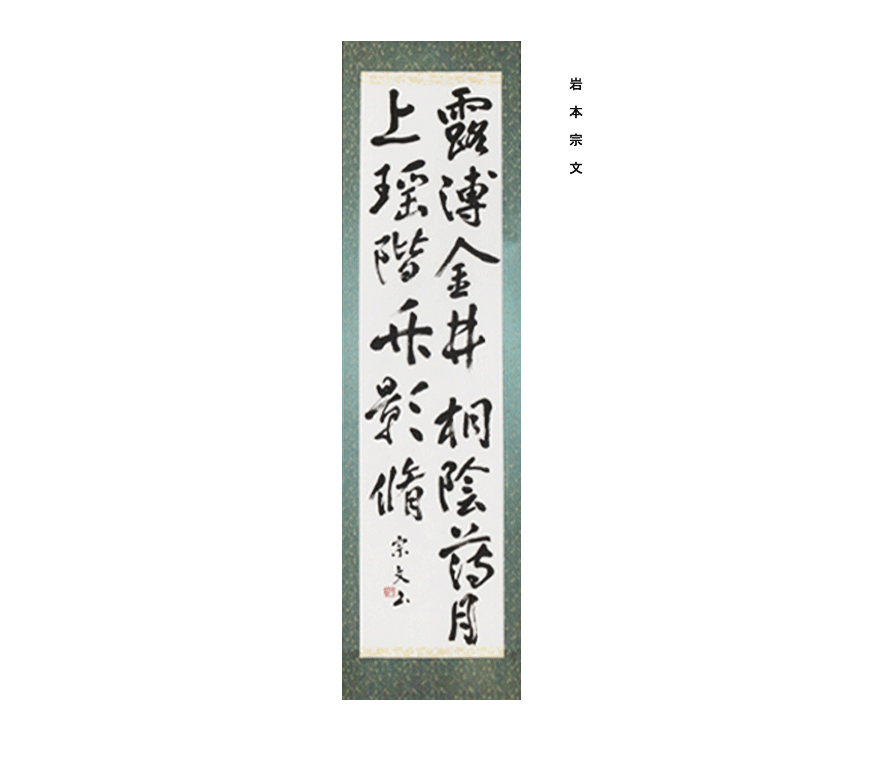 岩本宗文
露溥金井桐陰薄月
上瑶階竹影脩
宗文书